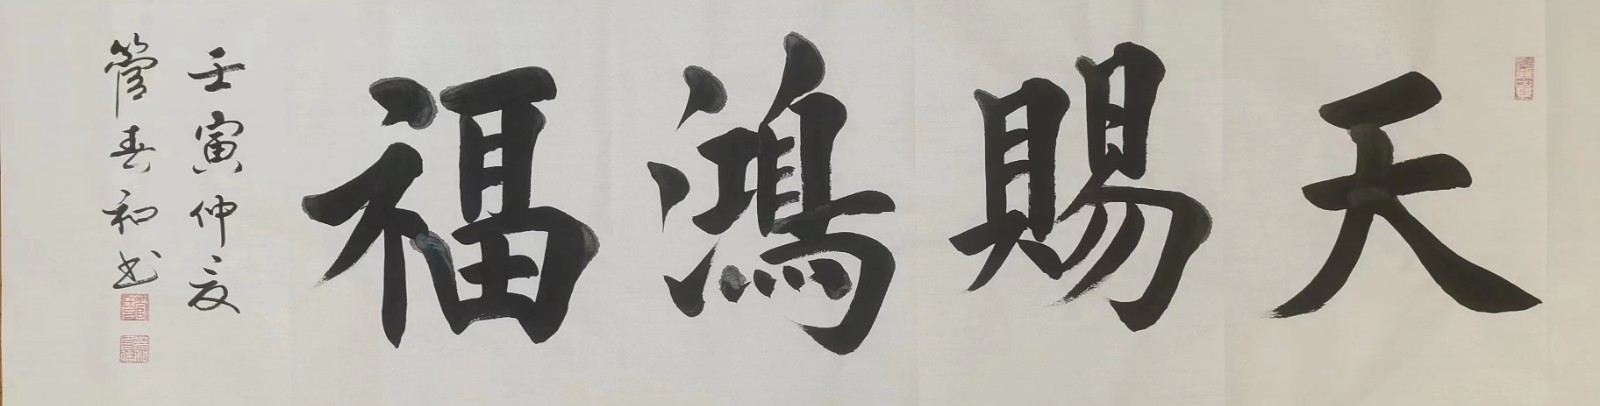 天賜鴻福
壬寅仲夏
管春和书